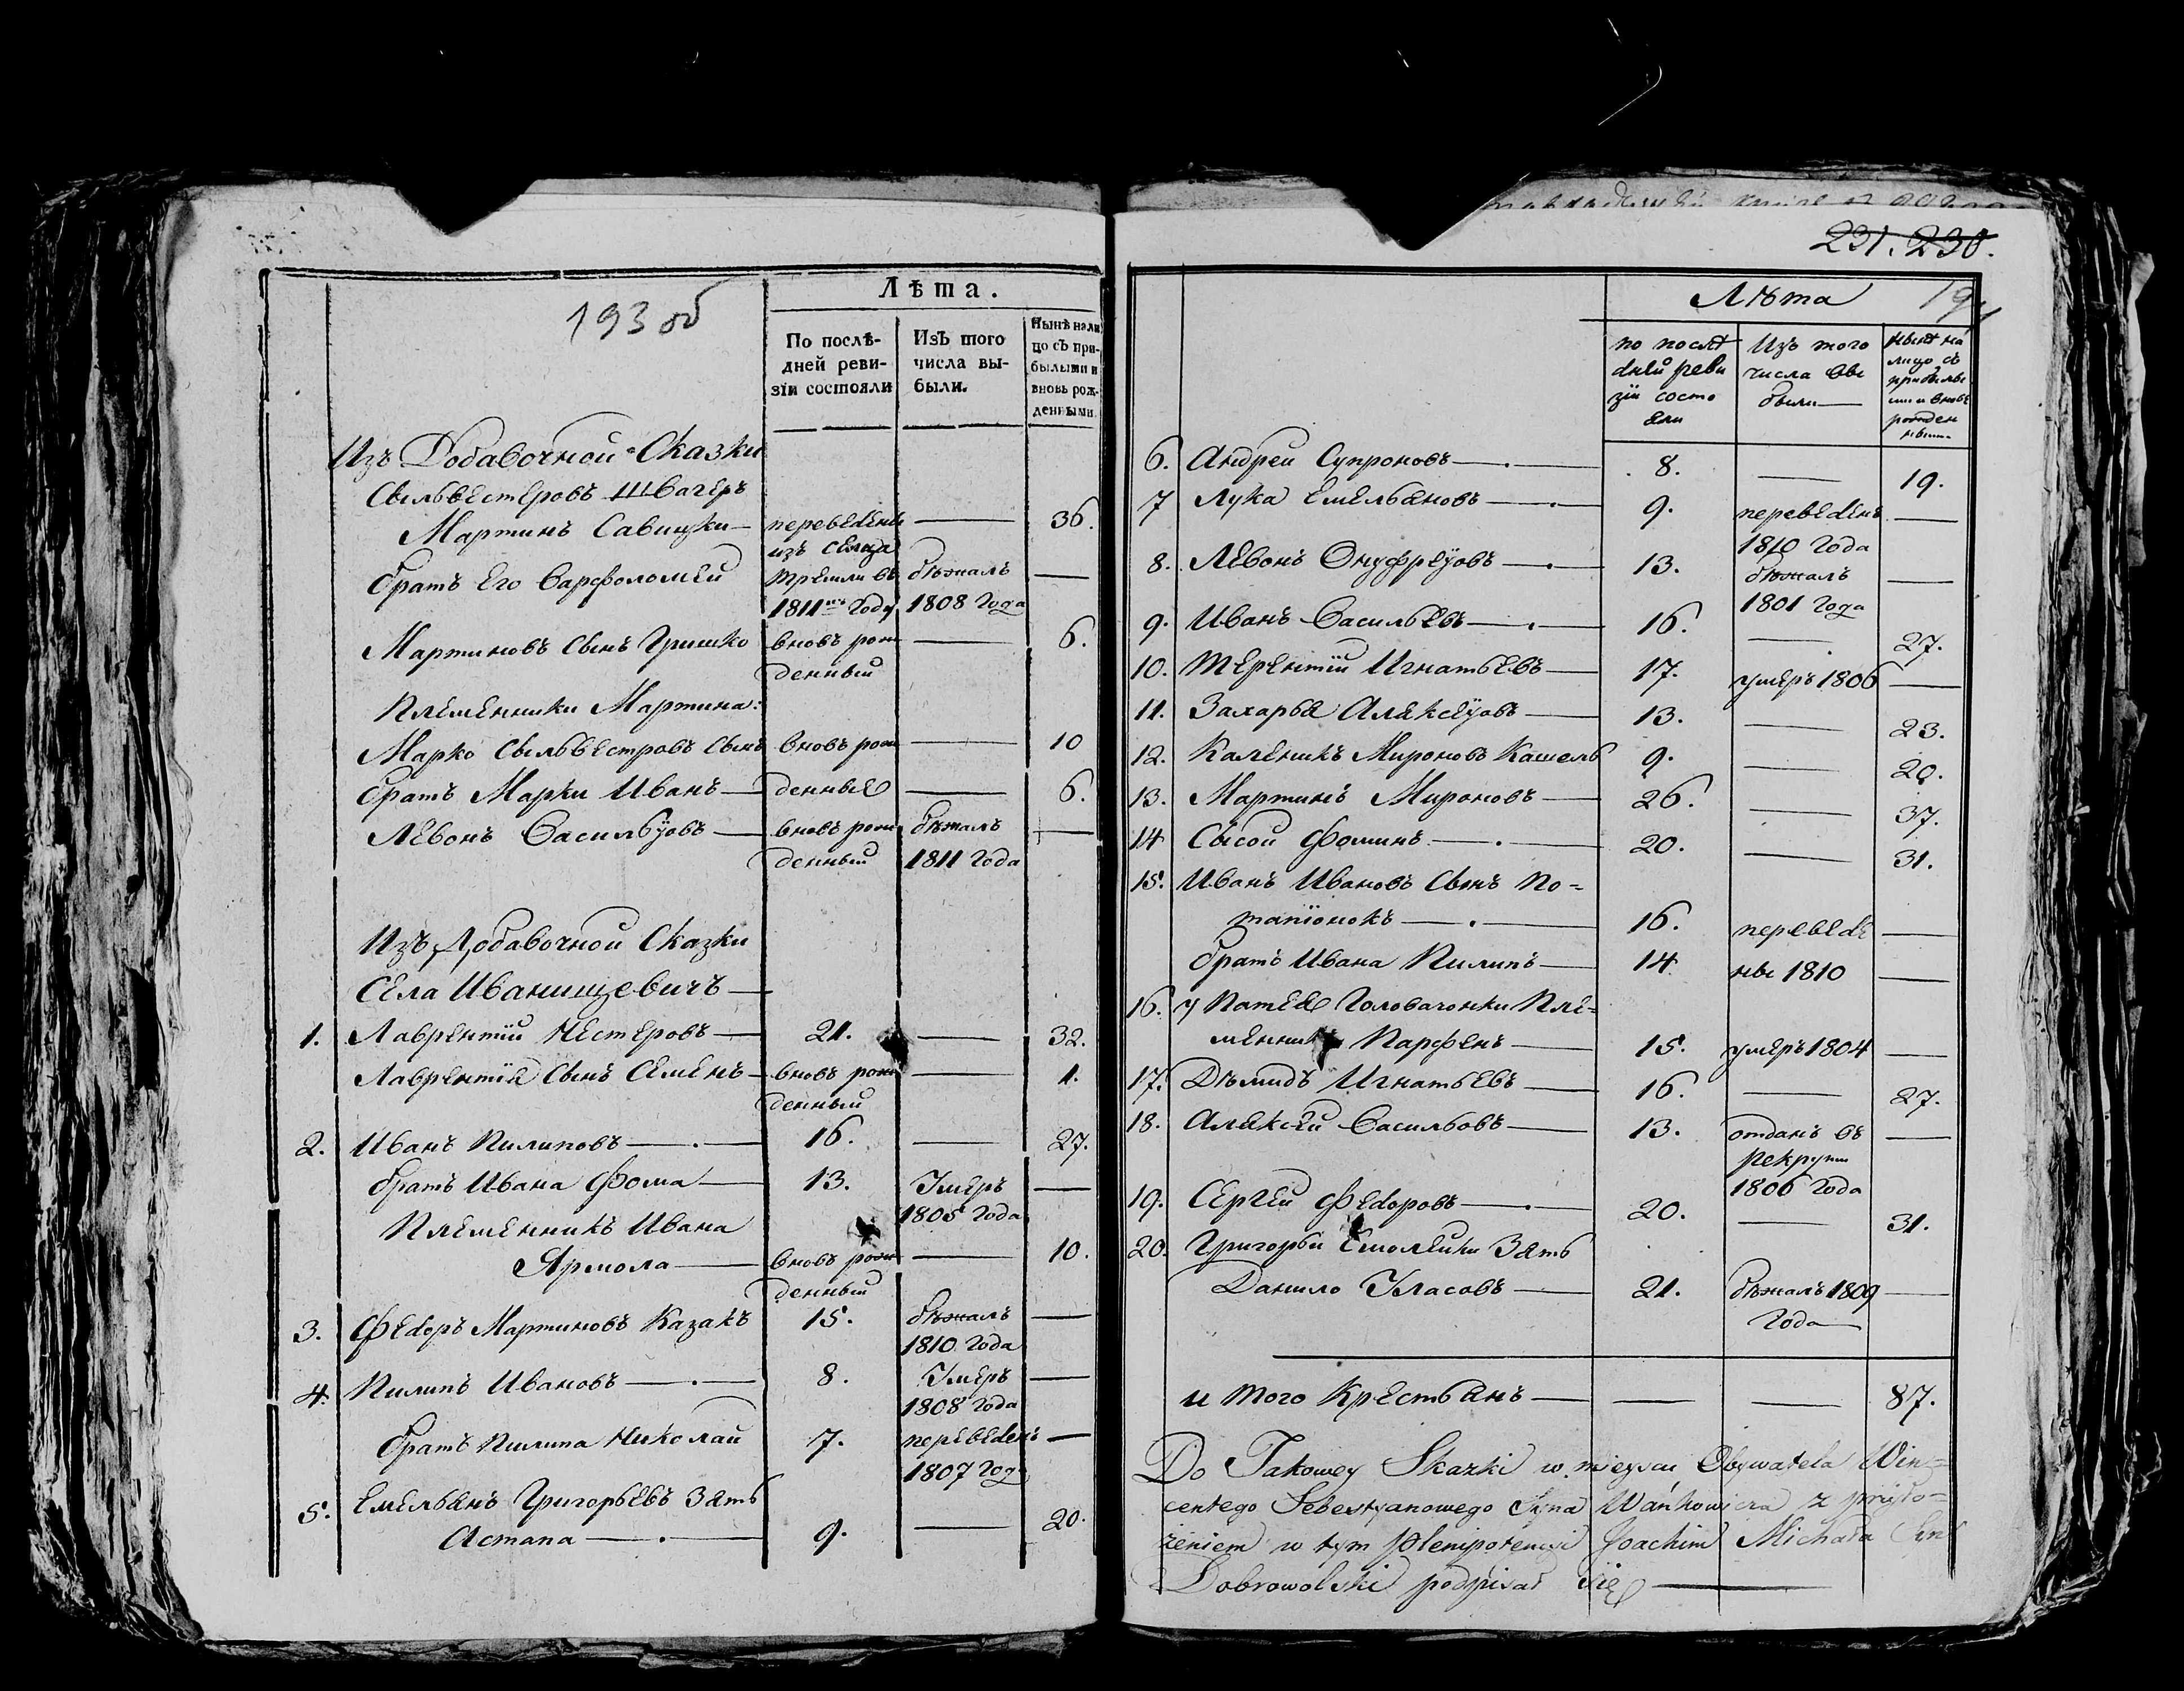 193 об
Лѣта.
По послѣ-
дней реви-
зіи состояли
Изъ того
числа вы-
были.
Нынѣ нали
цо съ при-
былыми и
вновь рож-
денными.
Изъ Добавочной Сказки
Сильвестеровъ Швагеръ
Мартинъ Савицки — переведены — 36.
изъ сельца
братъ Его Варфоломей бѣжалъ —
1811 Году 1808 Года
Мартиновъ Сынъ Гришко вновь рож — 6.
денный
Племенники Мартина:
Марко Сыльвестровъ Сынъ вновь рож — 10
братъ Марки Иванъ — денные — 6.
Левонъ Васильўовъ — вновь рож бѣжалъ —
денный 1811 Года
Изъ Добавочной Сказки
Села Иванищевичъ —
1. Лаврентій Нестеровъ — 21. — 32.
Лаврентія Сынъ Семенъ — вновь рож — 1.
денный
2. Иванъ Пилиповъ — 16. — 27.
братъ Ивана Фома — 13. Умеръ —
1805 Года
Племенникъ Ивана
Ярмола — вновь рож — 10.
денный
3. Федоръ Мартиновъ Казакъ 15. бѣжалъ —
1810 Года
4. Пилипъ Ивановъ — 8. Умеръ —
1808 Года
братъ Пилипа Николай 7. переведенъ —
1807 Год
5. Емельянъ Григорьевъ Зять
Астапа — 9. — 20.
231. 230.
Лѣта
по послѣ
дней реви
зіи состо
яли
Изъ того
числа вы
были —
Нынѣ на
лицо съ
прибылы
ми и вновь
рожден
ными
6. Андрей Супроновъ — 8. — 19.
7 Лука Емельяновъ — 9. переведенъ —
1810 Года
8. Левонъ Онуфреўовъ — 13. бѣжалъ —
1801 Года
9. Иванъ Васильевъ — 16. — 27.
10. Терентій Игнатьевъ — 17. умеръ 1806 —
11. Захарья Алексеўовъ — 13. — 23.
12. Каленикъ Мироновъ Кашель 9. — 20.
13. Мартинъ Мироновъ — 26. — 37.
14 Сысой Фоминъ — 20. — 31.
15. Иванъ Ивановъ Сынъ По=
тапіонокъ — 16. переведе —
братъ Ивана Пилипъ — 14 ны 1810 —
16. у Патея Головачонки Пле=
менник Парфенъ — 15. умеръ 1804 —
17. Дѣмидъ Игнатьевъ — 16. — 27.
18. Алексѣй Васильовъ — 13. отданъ въ —
рекруты
1806 Года
19. Сергей Федоровъ — 20. — 31.
20. Григорьи Смолейки Зять
Данило Уласовъ — 21. бѣжалъ 1809 —
Года —
и того Крестьянъ — — — 87.
Do Takowey Skazki w mieyscu Obywatela Win=
centego Sebestyanowego Syna Wańkowicza z przyło=
żeniem w tym plenipotencyi Joachim Michała Syn
Dobrowolski podpisał się —